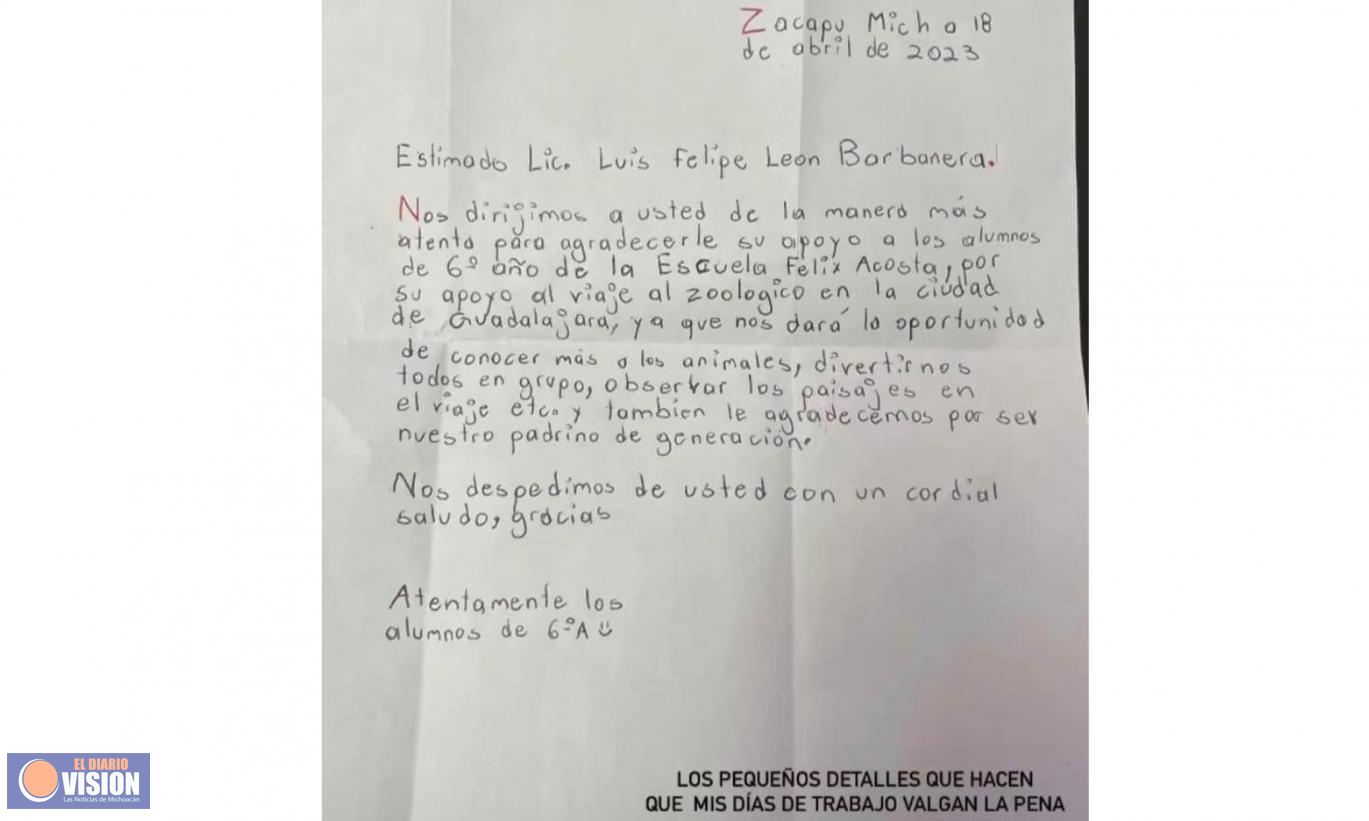 Zacapu Mich a 18
de abril de 2023
Estimado Lic. Luis Felipe Leon Barbanera.
Nos dirijimos a usted de la manera más
atenta para agradecerle su apoyo a los alumnos
de 6º año de la Escuela Felix Acosta, por
su apoyo al viaje al zoologico en la ciudad
de Guadalajara, ya que nos dará la oportunidad
de conocer más a los animales, divertirnos
todos en grupo, observar los paisajes en
el viaje etc. y tambien le agradecemos por ser
nuestro padrino de generación.
Nos despedimos de usted con un cordial
saludo, gracias
Atentamente los
alumnos de 6ºA
LOS PEQUEÑOS DETALLES QUE HACEN
QUE MIS DÍAS DE TRABAJO VALGAN LA PENA
EL DIARIO
VISION
Las Noticias de Michoacán